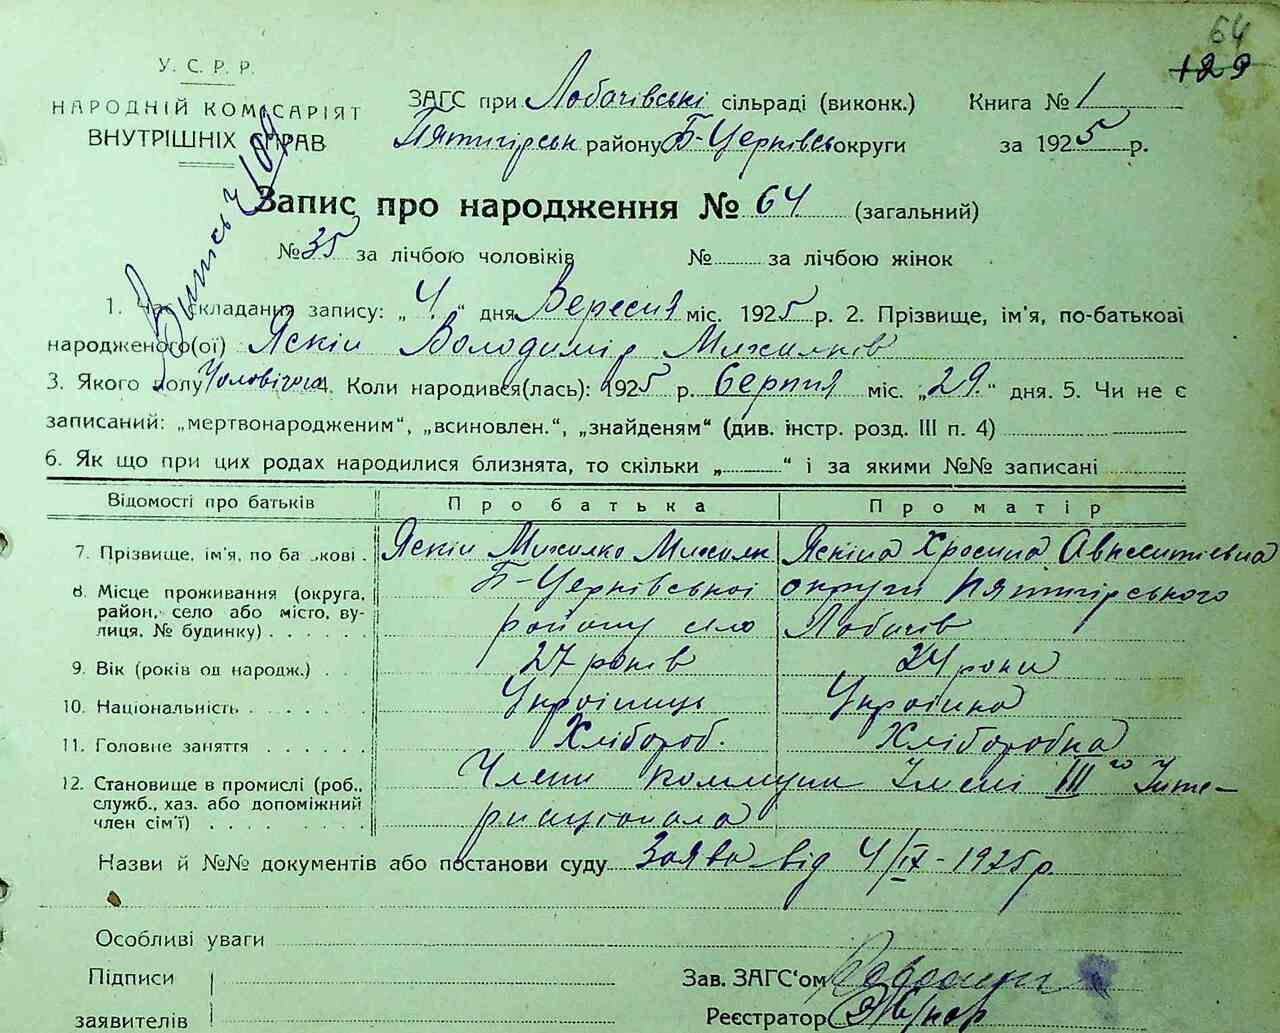 64
129
У. С. Р. Р.
НАРОДНІЙ КОМІСАРІЯТ
ВНУТРІШНІХ СПРАВ
ЗАГС при Лобачівські сільраді (виконк.) Книга № 1
Пятигірськ району Б-Черківсь округи за 1925 р.
Запис про народження № 64 (загальний)
№ 35 за лічбою чоловіків № за лічбою жінок
1. Час складання запису: „ 4 “ дня Вересня міс. 1925 р. 2. Прізвище, ім'я, по-батькові
народженого(ої) Яскін Володимір Михилків
3. Якого полу Чоловічого 4. Коли народився(лась): 1925 р. Серпня міс. „ 29. “ дня. 5. Чи не є
записаний: „мертвонародженим“, „всиновлен.“, „знайденям“ (див. інстр. розд. III п. 4)
6. Як що при цих родах народилися близнята, то скільки „ “ і за якими №№ записані
Відомості про батьків Про батька Про матір
7. Прізвище, ім'я, по ба кові . Яскін Михилко Яскіна
8. Місце проживання (округа, Б-Черківської округи Пятигірського
район, село або місто, ву-
лиця, № будинку) . . . . . . району село Лобачів
9. Вік (років од народж.) . . 27 років 24 роки
10. Національність . . . . . . Українець Українка
11. Головне заняття . . . . . . Хлібороб. Хліборобка
12. Становище в промислі (роб., Члени коммуни Імені III го Інте-
служб., хаз. або допоміжний
член сім'ї) . . . . . . . рнаціонала
Назви й №№ документів або постанови суду Заява від 4/IX - 1925 р.
Особливі уваги
Підписи Зав. ЗАГС'ом
заявителів Реєстратор